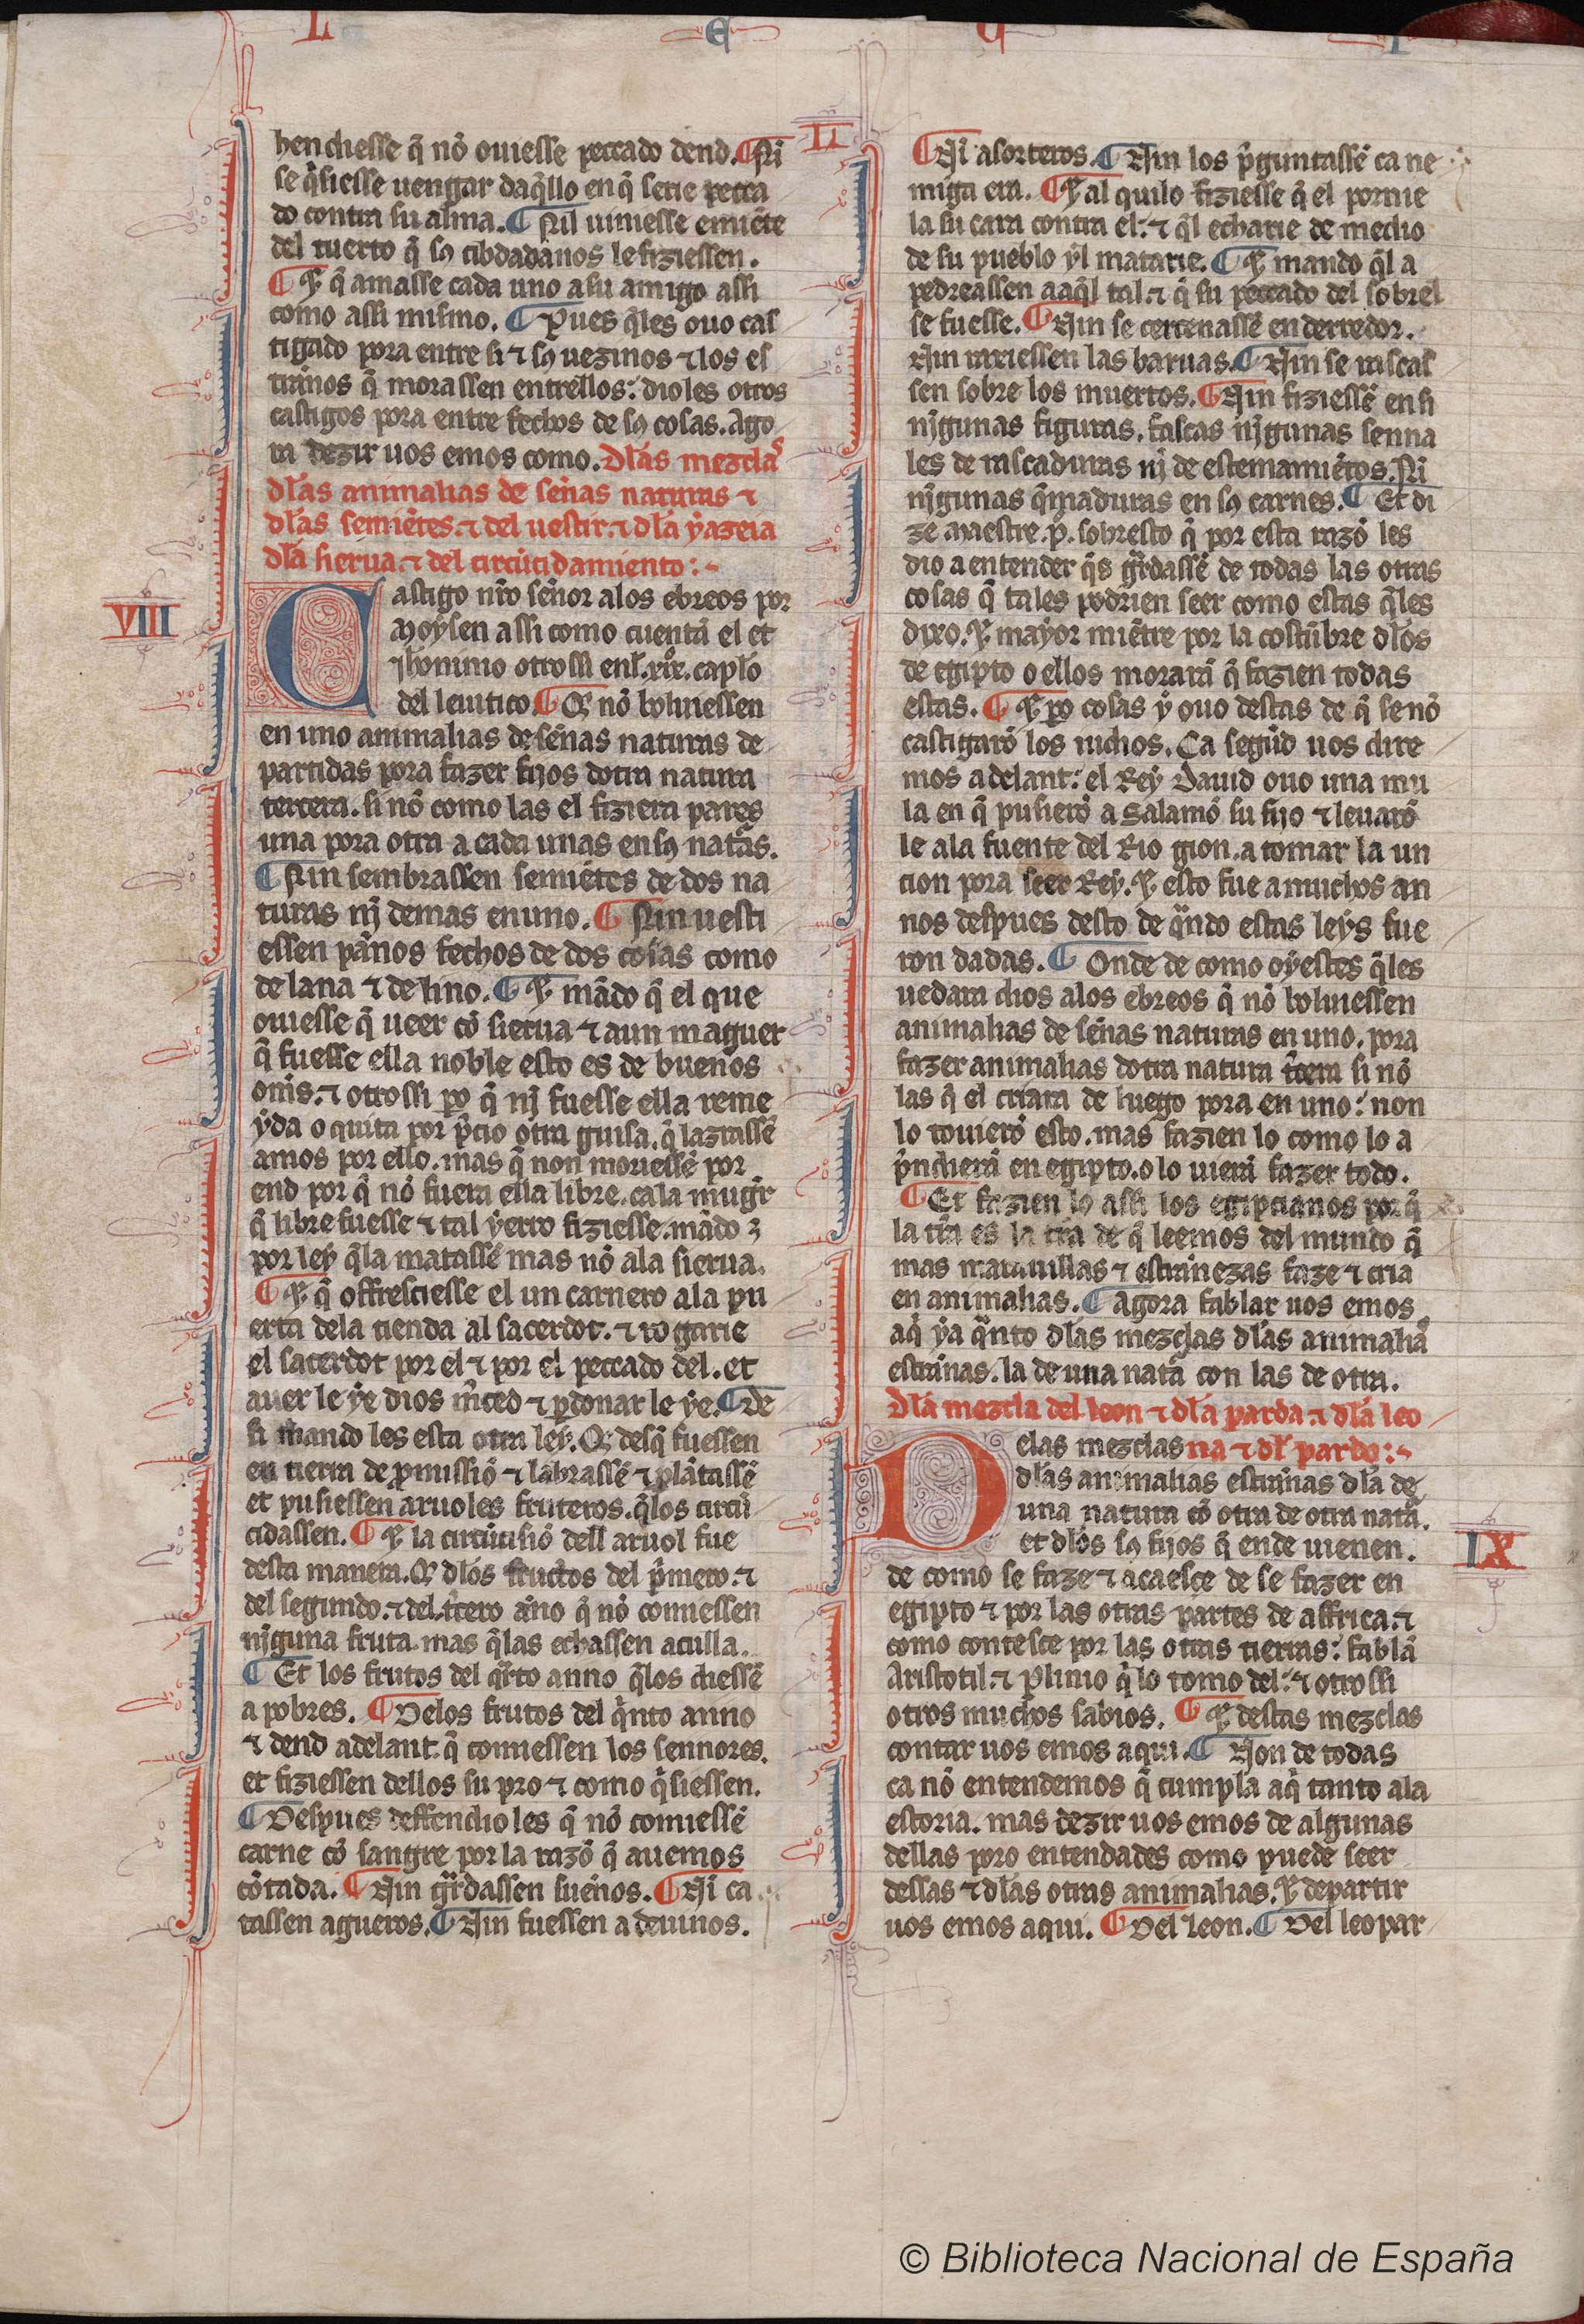 L E U I
henchesse q̃ nõ ouiesse peccado dend. ¶ Ni
se q̃siesse uengar daq̃llo en q̃ serie pecca
do contra su alma. ¶ Nil uiniesse emiẽte
del tuerto q̃ sꝯ cibdadanos le fiziessen.
¶ Ꞇ q̃ amasse cada uno a su amigo assi
como assi mismo. ¶ Pues q̃les ouo cas
tigado pora entre si ⁊ sꝯ uezinos ⁊ los es
trãnos q̃ morassen entrellos: dioles otros
castigos pora entre fechos de sꝯ cosas. Ago
ra dezir uos emos como. Dlas mezclas
dlas animalias de sẽnas naturas ⁊
dlas semiẽtes. ⁊ del uestir. ⁊ dla yazeia
dla sierua. ⁊ del circũcidamiento:-
VIII
Castigo nr̃o sẽnor alos ebreos por
Moysen assi como cuentã el et
Jheronimo otrossi enl .xix. capl̃o
del leuitico. ¶ Q̃ nõ boluiessen
en uno animalias de sẽnas naturas de
partidas pora fazer fijos dotra natura
tercera. si nõ como las el fiziera pares
una pora otra a cada unas en sꝯ nat̃as.
¶ Nin sembrassen semiẽtes de dos na
turas nĩ demas en uno. ¶ Nin uesti
essen pãnos fechos de dos cosas como
de lana ⁊ de lino. ¶ Ꞇ mãdo q̃ el que
ouiesse q̃ ueer cõ sierua ⁊ aun maguer
q̃ fuesse ella noble esto es de buenos
om̃s. ⁊ otrossi po q̃ nĩ fuesse ella reme
yda o quita por p̃cio otra guisa. q̃ lazrassẽ
amos por ello. mas q̃ non moriessẽ por
end por q̃ nõ fuera ella libre. ca la mugr̃
q̃ libre fuesse ⁊ tal yerro fiziesse. mãdo
por ley q̃la matassẽ mas nõ ala sierua.
¶ Ꞇ q̃ offresciesse el un carnero ala pu
erta dela tienda al sacerdot. ⁊ rogarie
el sacerdot por el ⁊ por el peccado del. et
auer le ye dios m̃ced ⁊ pdonar le ye. ¶ De
si mando les esta otra ley. Q̃ desq̃ fuessen
en tierra de pmissiõ ⁊ labrassẽ ⁊ plãtassẽ
et pusiessen aruoles fruteros. q̃los circũ
cidassen. ¶ Ꞇ la circũcisiõ dell aruol fue
desta manera. Q̃ dlos fructos del p̃mero. ⁊
del segundo. ⁊ del t̃cero ãno q̃ nõ comiessen
nĩguna fruta. mas q̃las echassen aculla.
¶ Et los frutos del q̃rto anno q̃los diessẽ
a pobres. ¶ Delos frutos del q̃nto anno
⁊ dend adelant. q̃ comiessen los sennores.
et fiziessen dellos su pro ⁊ como q̃siessen.
¶ Despues deffendioles q̃ nõ comiessẽ
carne cõ sangre por la razõ q̃ auemos
cõtada. ¶ Nin gr̃dassen suẽnos. ¶ Ni ca
tassen agueros. ¶ Nin fuessen a deuinos.
II
¶ Ni a sorteros. ¶ Nin los p̃guntassẽ ca ne
miga era. ¶ Ꞇ al qui lo fiziesse q̃ el pornie
la su cara contra el: ⁊ q̃l echarie de medio
de su pueblo yl matarie. ¶ Ꞇ mando q̃l a
pedreassen a aq̃l tal. ⁊ q̃ su peccado del sobrel
se fuesse. ¶ Nin se cercenassẽ en derredor.
Nin raxiessen las baruas. ¶ Nin se rascas
sen sobre los muertos. ¶ Nin fiziessẽ en si
nĩgunas figuras. fascas nĩgunas senna
les de rascaduras nĩ de estemamiẽtos. Ni
nĩgunas q̃maduras en sꝯ carnes. ¶ Et di
ze maestre .p̃. sobresto q̃ por esta razõ les
dio a entender q̃s gr̃dassẽ de todas las otras
cosas q̃ tales podrien seer como estas q̃les
dixo. Ꞇ mayor miẽtre por la costũbre dlos
de egipto o ellos morarã q̃ fazien todas
estas. ¶ Ꞇ po cosas y ouo destas de q̃ se nõ
castigarõ los iudios. Ca segũd uos dire
mos adelant: el Rey Dauid ouo una mu
la en q̃ pusierõ a Salamõ su fijo ⁊ leuarõ
le ala fuente del Rio gion. a tomar la un
cion pora seer Rey. Ꞇ esto fue a muchos an
nos despues desto de q̃ndo estas leys fue
ron dadas. ¶ Onde de como oyestes q̃les
uedara dios alos ebreos q̃ nõ boluiessen
animalias de sẽnas naturas en uno. pora
fazer animalias dotra natura t̃cera si nõ
las q̃ el criara de luego pora en uno: non
lo touierõ esto. mas fazien lo como lo a
p̃ndierã en egipto. o lo uierã fazer todo.
¶ Et fazien lo assi los egipcianos por q̃
la tr̃ra es la tr̃ra de q̃ leemos del mundo q̃
mas marauillas ⁊ estranezas faze ⁊ cria
en animalias. ¶ Agora fablar uos emos
aq̃ ya q̃nto dlas mezclas dlas animalias
estrãnas. la de una nat̃a con las de otra.
Dla mezcla del leon ⁊ dla parda ⁊ dla leo
na ⁊ dl pardo:-
IX
Delas mezclas
dlas animalias estrãnas dla de
una natura cõ otra de otra nat̃a.
et dlos sꝯ fijos q̃ ende uienen.
de como se faze ⁊ acaesce de se fazer en
egipto ⁊ por las otras partes de affrica. ⁊
como contesce por las otras tierras: fablã
Aristotil. ⁊ Plinio q̃ lo tomo del: ⁊ otrossi
otros muchos sabios. ¶ Ꞇ destas mezclas
contar uos emos aqui. ¶ Non de todas
ca nõ entendemos q̃ cumpla aq̃ tanto ala
estoria. mas dezir uos emos de algunas
dellas poro entendades como puede seer
dessas ⁊ dlas otras animalias. Ꞇ departir
uos emos aqui. ¶ Del Leon. ¶ Del leopar
© Biblioteca Nacional de España